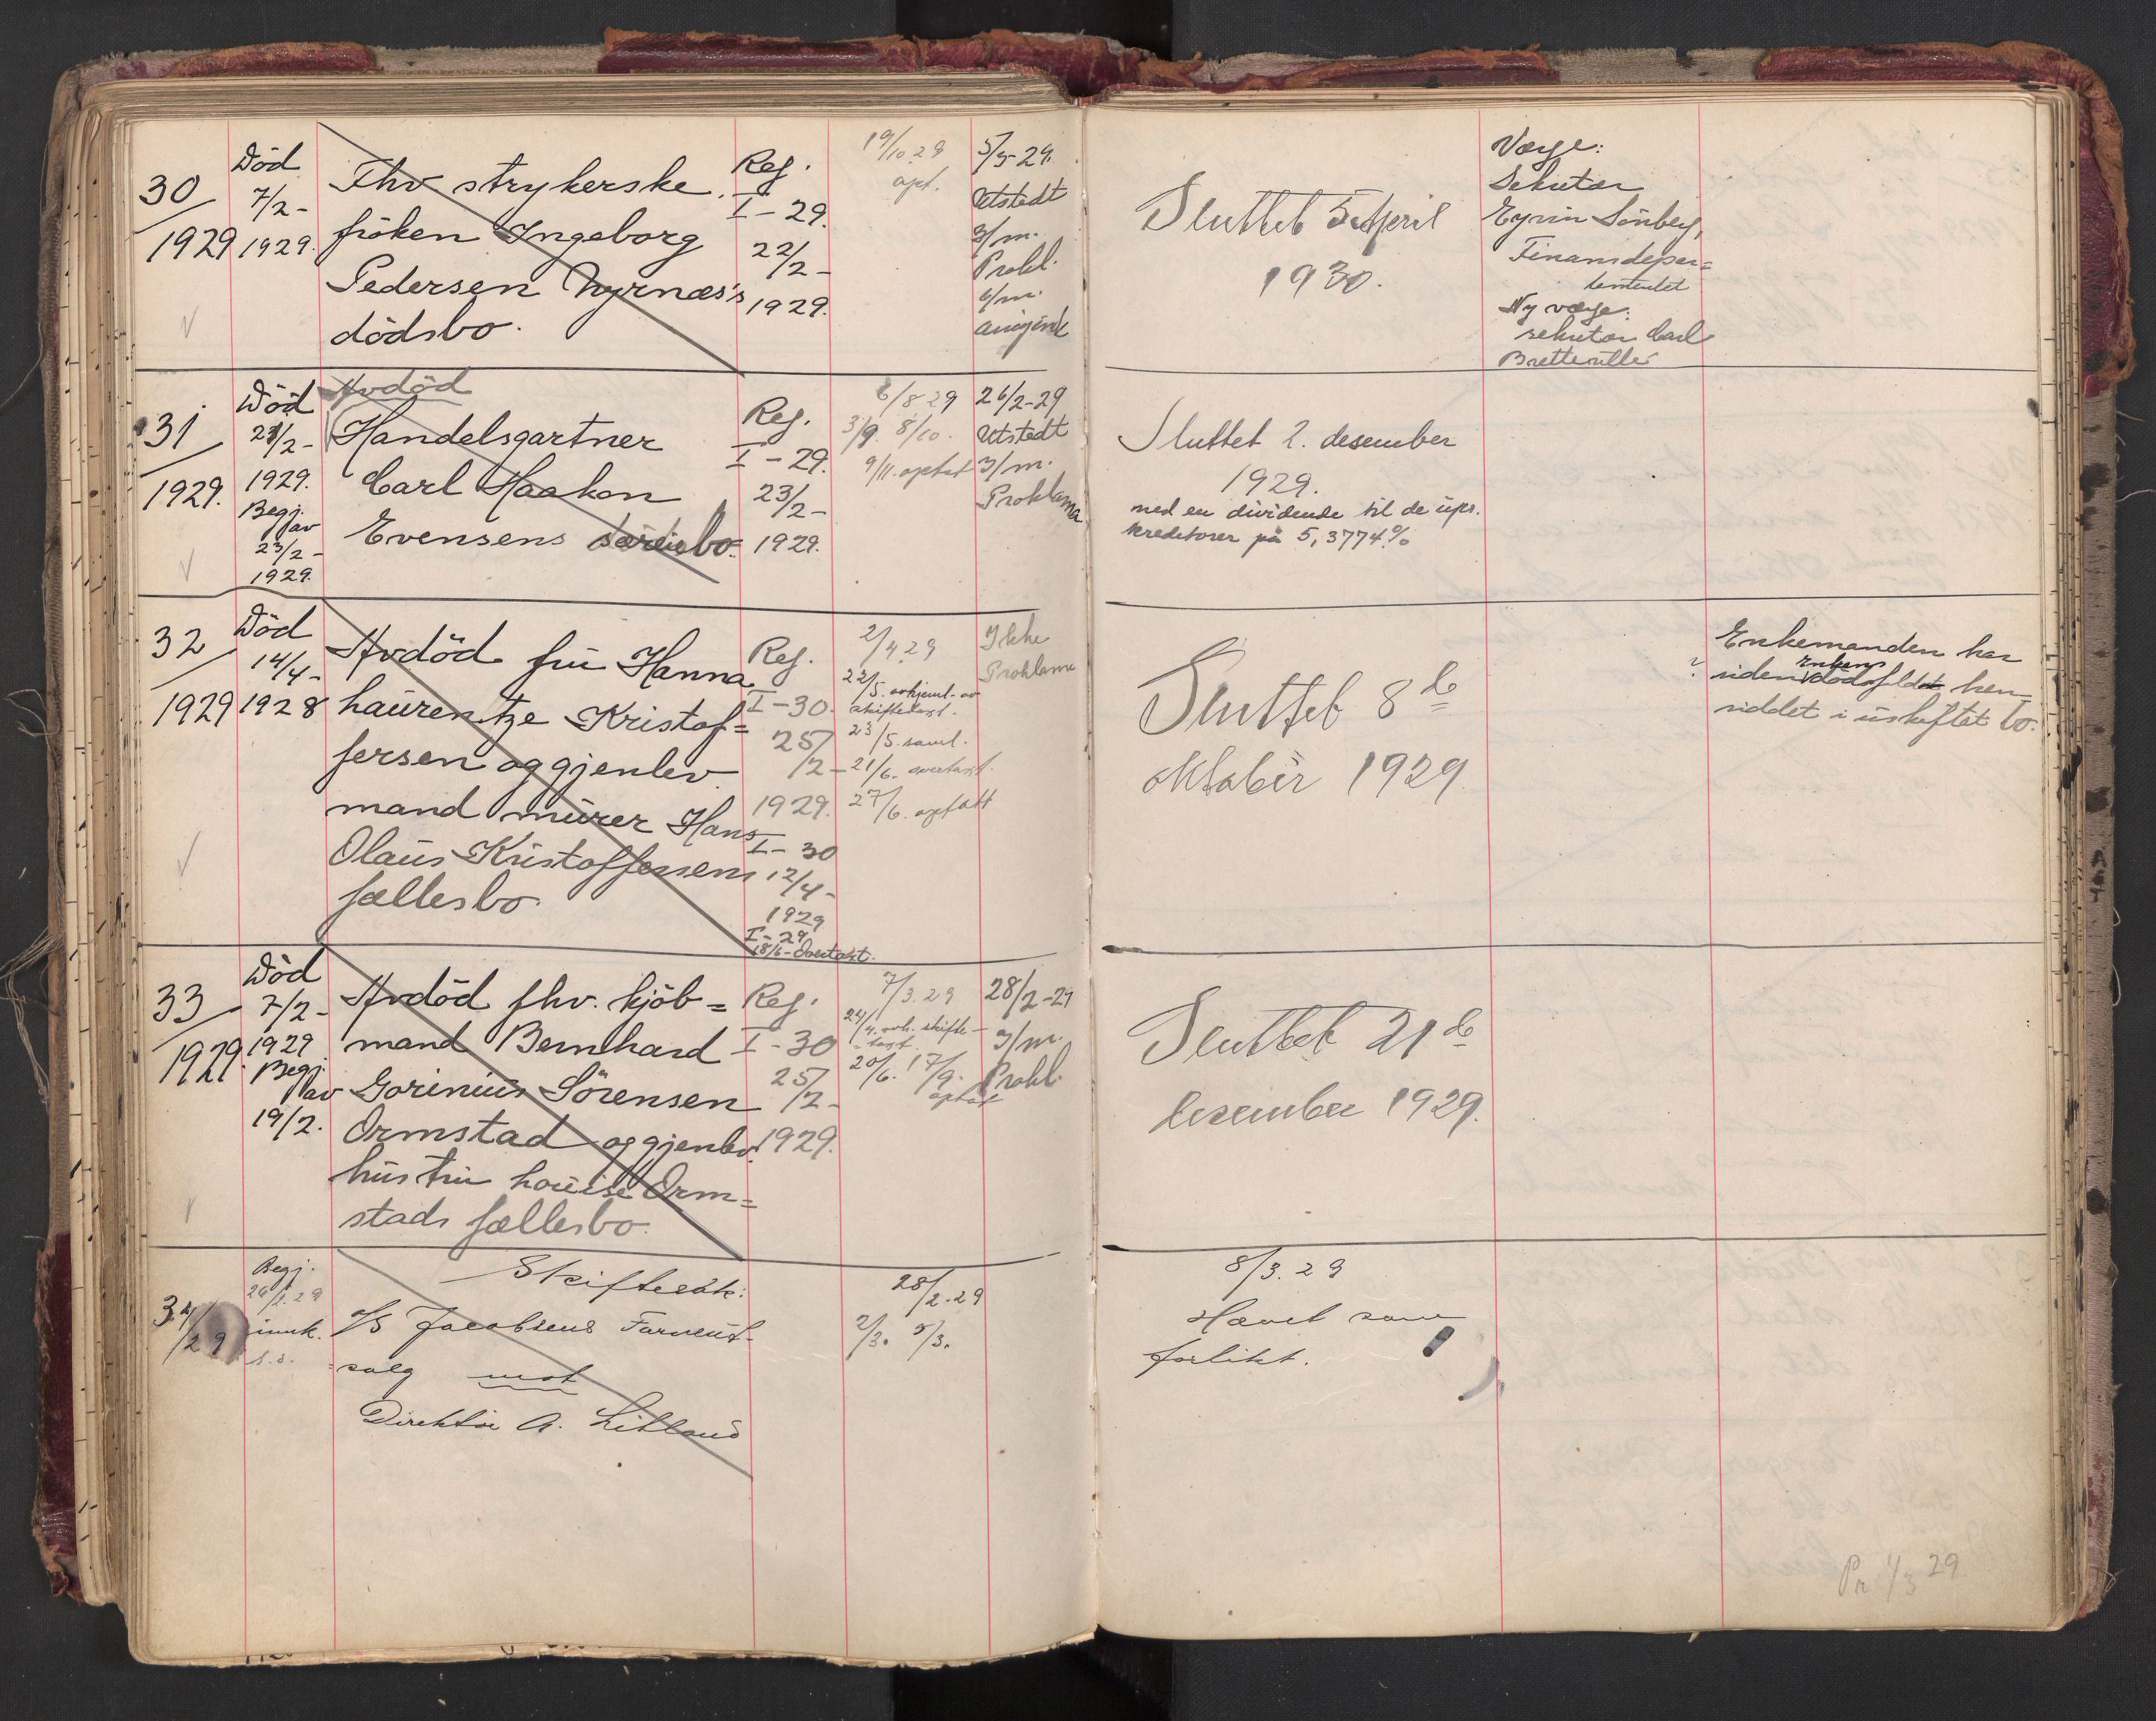 30
1929
Död
7/2-
1929.
Fhv. strykerske
fröken Ingeborg
Pedersen Myrnæs's
dödsbo.
Reg.
I-29.
22/2-
1929.
19/10 29
opt.
5/3-29.
Utstedt
3/m.
Prokl.
6/m.
Sluttet 5 April
1930.
Værge:
Sekretær
Eyvin Sönberg,
Finansdepar=
tementet
Ny værge:
sekretær Carl
31
1929.
Död
23/2-
1929.
Begj.
av
23/2-
1929.
Avdöd
Handelsgartner
Carl Haakon
Evensens særeiebo.
Reg.
I-29.
23/2-
1929.
6/8 29
3/9. 8/10.
9/11. optat
26/2-29
Utstedt
3/m.
Proklama
Sluttet 2. desember
1929.
med en dividende til de upr.
kreditorer på 5,3774%
32
1929
Död
14/4-
1928
Avdöd fru Hanna
Laurentze Kristof=
fersen og gjenlev.
mand murer Hans
Olaus Kristoffersens
fællesbo.
Reg.
I-30.
25/2-
1929.
I-30
12/4-
1929
I-29
18/6-Overtat.
2/4 29
22/5. avhjeml. av
skiftetakst.
23/5. saml.
21/6. overtakst.
27/6. opsatt
Ikke
Proklama
Sluttet 8de
oktober 1929
Enkemanden har
siden enkens dödsfald hen=
siddet i uskiftet bo.
33
1929.
Död
7/2-
1929
Begj.
av
19/2.
Avdöd fhv. kjöb=
mand Bernhard
Gorinius Sörensen
Ormstad og gjenlev.
hustru Louise Orm=
stads fællesbo.
Reg.
I-30
25/2-
1929.
7/3.29
24/4. avh. skifte-
takst.
20/6. 17/9.
optat
28/2-29
3/m.
Prokl.
Sluttet 21de
desember 1929.
34/29
Begj.
26/2.29
innk.
s.d.
Skiftesak:
A/S Jacobsens Farveut-
salg mot
Direktör A. Litland
28/2.29
2/3. 5/3.
8/3.29
Hævet som
forlikt.
Pr 1/3 29